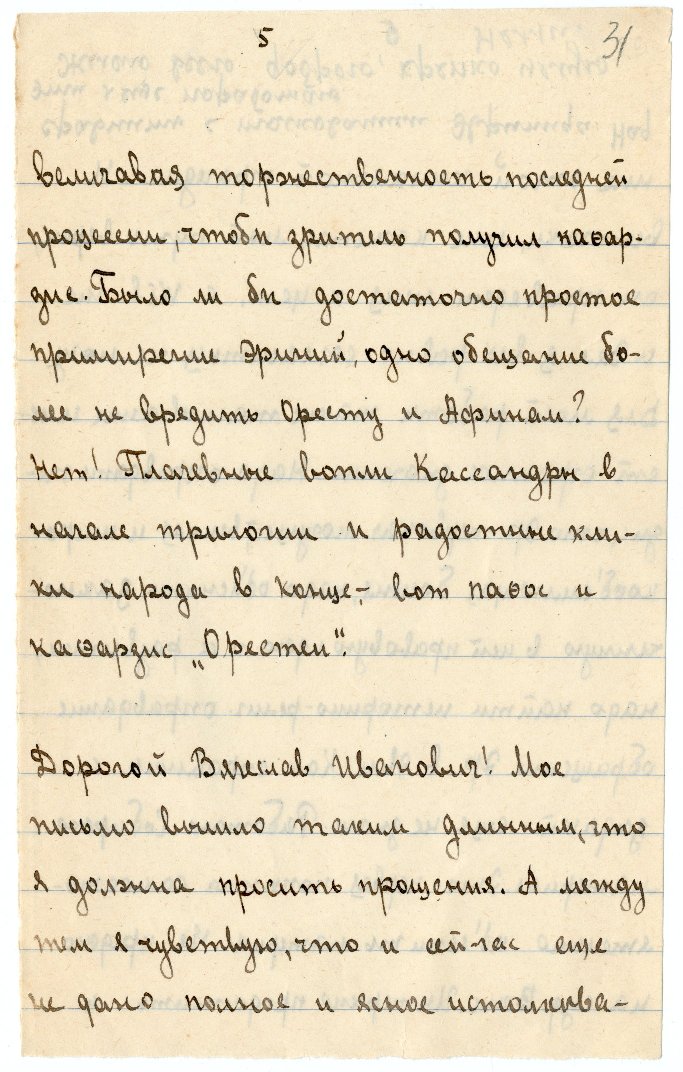 5
31
величавая торжественность последней
процессии, чтобы зритель получил каѳар-
зис. Было ли бы достаточно простое
примирение Эриний, одно обещание бо-
лее не вредить Оресту и Афинам?
Нет! Плачевные вопли Кассандры в
начале трилогии и радостные кли-
ки народа в конце,- вот паѳос и
каѳарзис „Орестеи“.
Дорогой Вячеслав Иванович! Мое
письмо вышло таким длинным, что
я должна просить прощения. А между
тем я чувствую, что и сей-час еще
не дано полное и ясное истолкова-